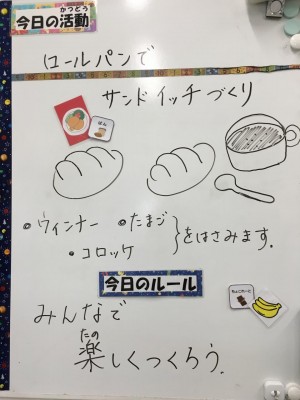 かつどう
今日の活動
ロールパンで
サンドイッチづくり
ぱん
・ウィンナー ・たまご
・コロッケ
}をはさみます.
今日のルール
ちょこれーと
みんなで
たの
楽しくつくろう.